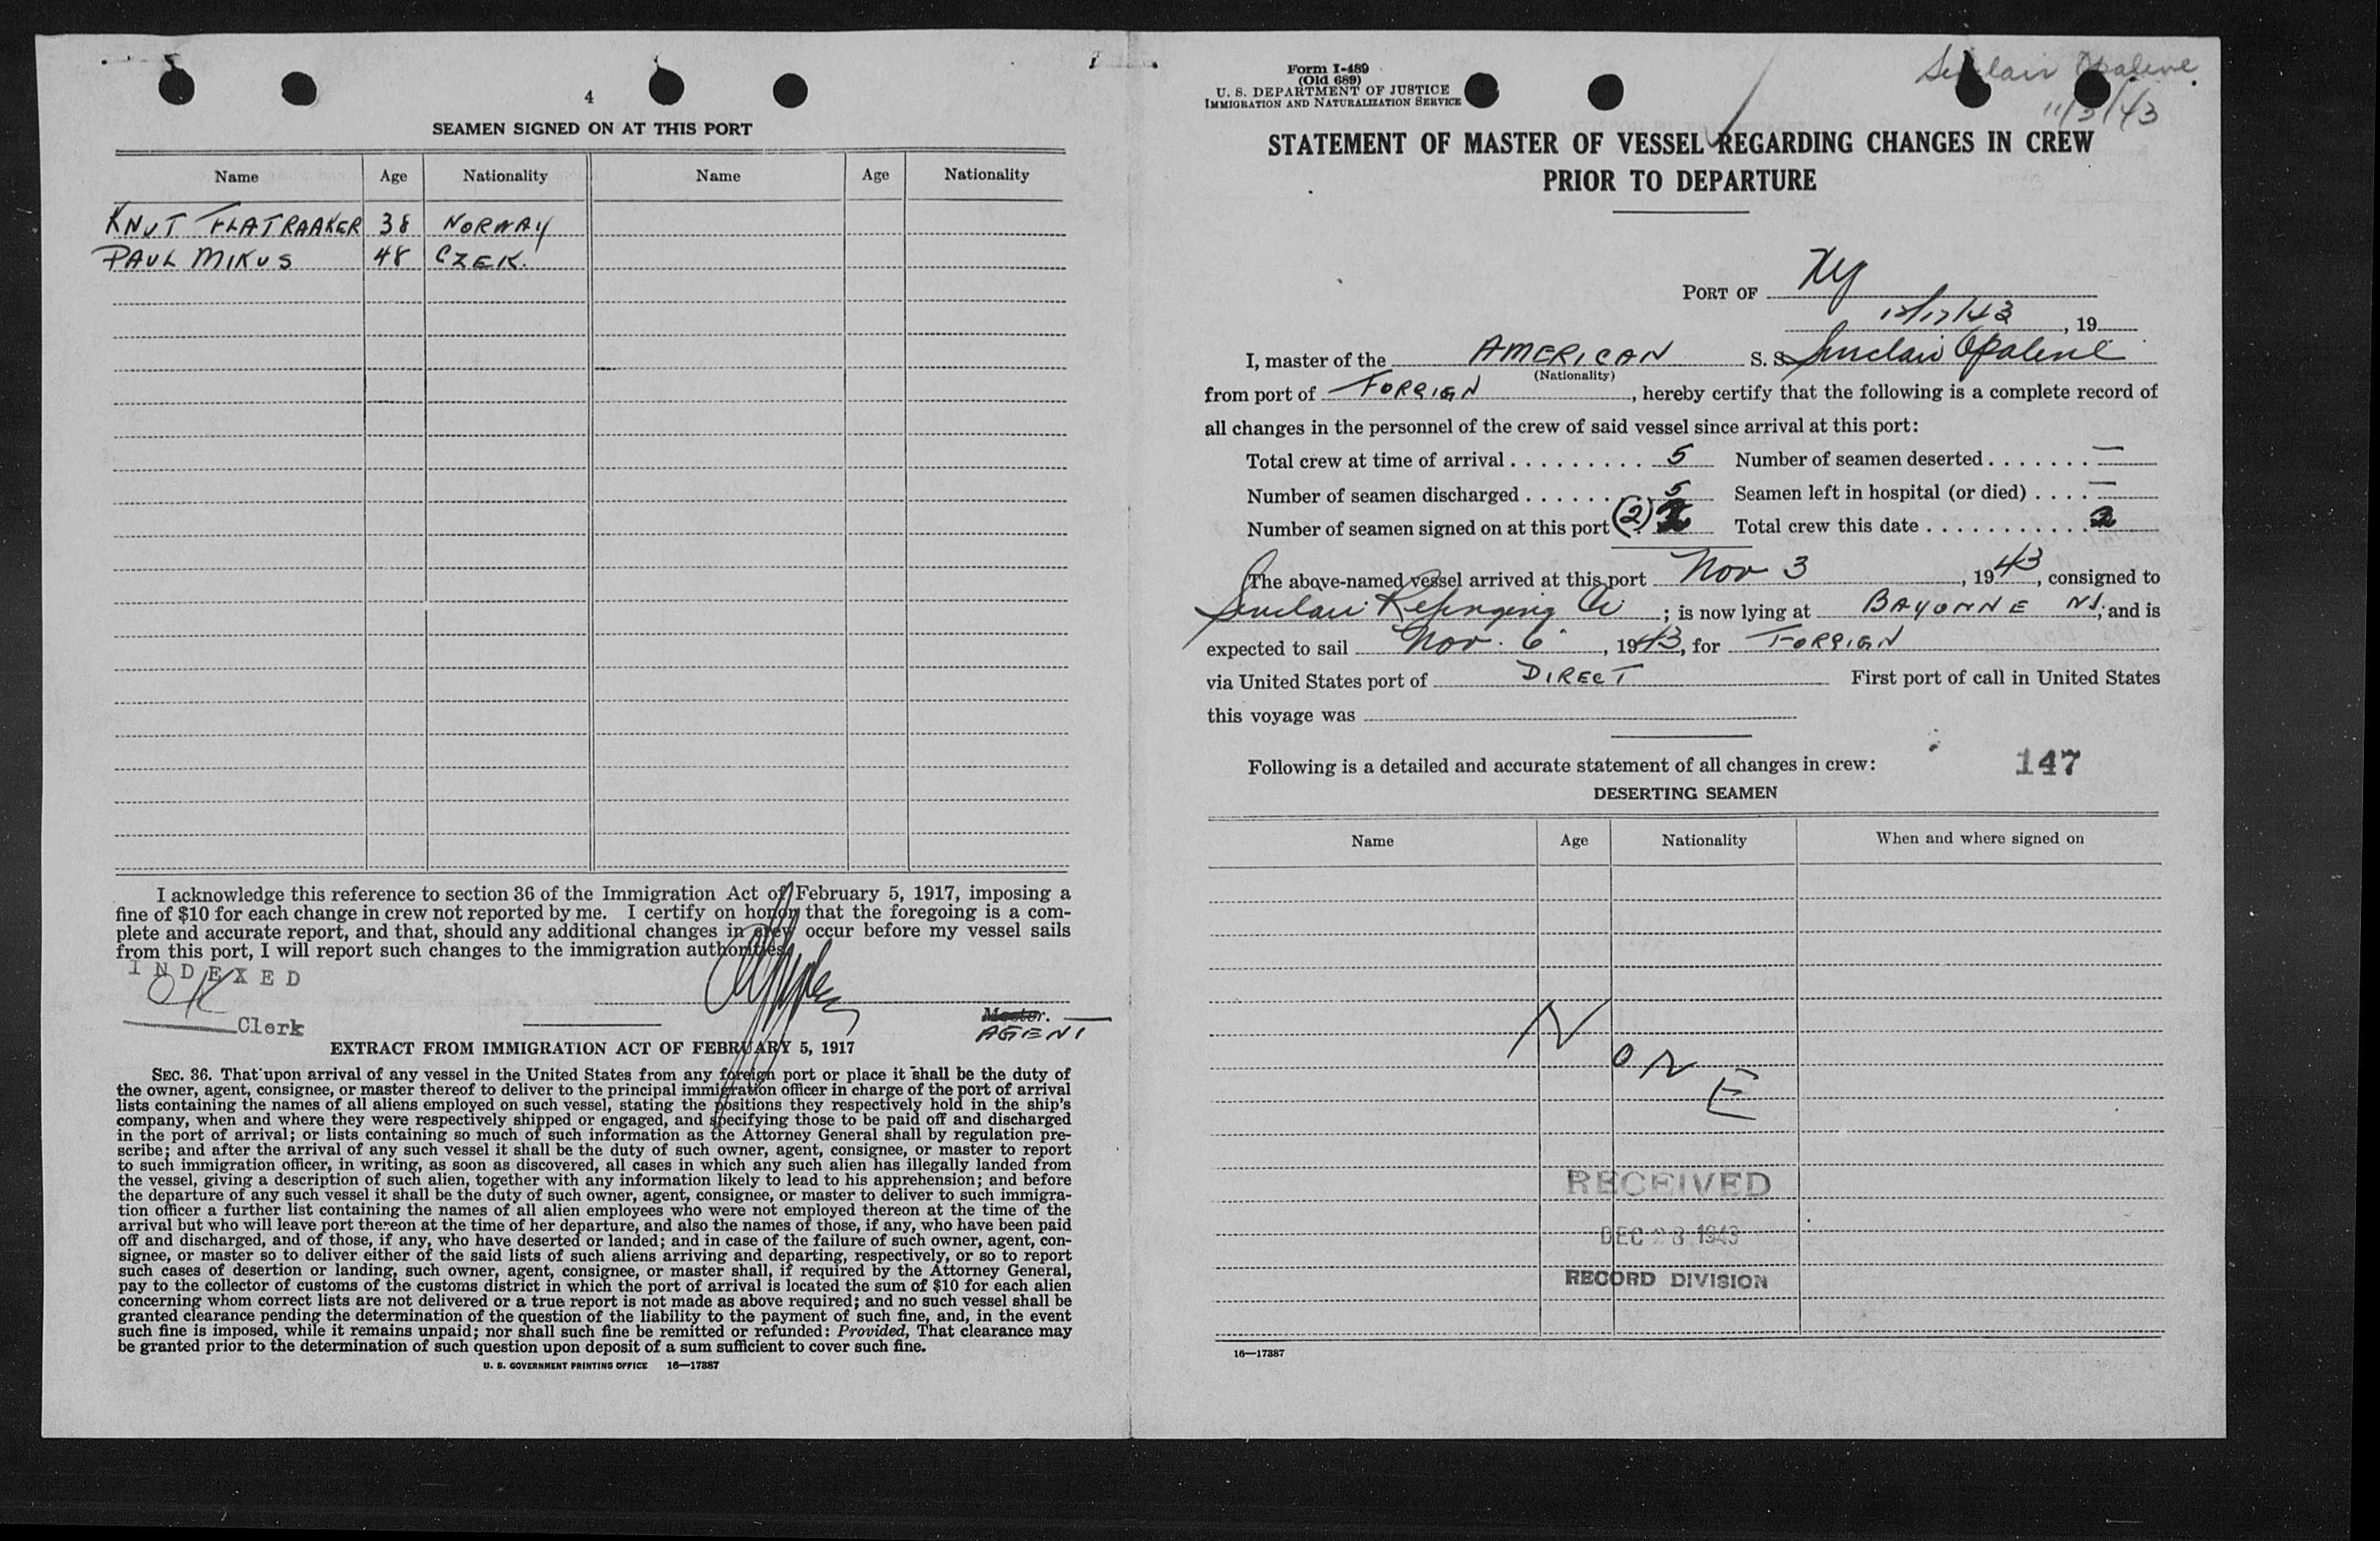 4
SEAMEN SIGNED ON AT THIS PORT
Name Age Nationality Name Age Nationality
KNUT FLATRAAKER 38 NORWAY
PAUL MIKUS 48 CZEK.
I acknowledge this reference to section 36 of the Immigration Act of February 5, 1917, imposing a
fine of $10 for each change in crew not reported by me. I certify on honor that the foregoing is a com-
plete and accurate report, and that, should any additional changes in crew occur before my vessel sails
from this port, I will report such changes to the immigration authorities.
INDEXED
OK
Clerk
Master.
AGENT
EXTRACT FROM IMMIGRATION ACT OF FEBRUARY 5, 1917
SEC. 36. That upon arrival of any vessel in the United States from any foreign port or place it shall be the duty of
the owner, agent, consignee, or master thereof to deliver to the principal immigration officer in charge of the port of arrival
lists containing the names of all aliens employed on such vessel, stating the positions they respectively hold in the ship's
company, when and where they were respectively shipped or engaged, and specifying those to be paid off and discharged
in the port of arrival; or lists containing so much of such information as the Attorney General shall by regulation pre-
scribe; and after the arrival of any such vessel it shall be the duty of such owner, agent, consignee, or master to report
to such immigration officer, in writing, as soon as discovered, all cases in which any such alien has illegally landed from
the vessel, giving a description of such alien, together with any information likely to lead to his apprehension; and before
the departure of any such vessel it shall be the duty of such owner, agent, consignee, or master to deliver to such immigra-
tion officer a further list containing the names of all alien employees who were not employed thereon at the time of the
arrival but who will leave port thereon at the time of her departure, and also the names of those, if any, who have been paid
off and discharged, and of those, if any, who have deserted or landed; and in case of the failure of such owner, agent, con-
signee, or master so to deliver either of the said lists of such aliens arriving and departing, respectively, or so to report
such cases of desertion or landing, such owner, agent, consignee, or master shall, if required by the Attorney General,
pay to the collector of customs of the customs district in which the port of arrival is located the sum of $10 for each alien
concerning whom correct lists are not delivered or a true report is not made as above required; and no such vessel shall be
granted clearance pending the determination of the question of the liability to the payment of such fine, and, in the event
such fine is imposed, while it remains unpaid; nor shall such fine be remitted or refunded: Provided, That clearance may
be granted prior to the determination of such question upon deposit of a sum sufficient to cover such fine.
U. S. GOVERNMENT PRINTING OFFICE 16—17887
Form I-489
(Old 689)
U. S. DEPARTMENT OF JUSTICE
IMMIGRATION AND NATURALIZATION SERVICE
Sinclair Opaline
11/3/43
STATEMENT OF MASTER OF VESSEL REGARDING CHANGES IN CREW
PRIOR TO DEPARTURE
PORT OF NY
12/17/43, 19
I, master of the AMERICAN S. S. Sinclair Opaline
(Nationality)
from port of FOREIGN, hereby certify that the following is a complete record of
all changes in the personnel of the crew of said vessel since arrival at this port:
Total crew at time of arrival 5 Number of seamen deserted —
Number of seamen discharged 5 Seamen left in hospital (or died) —
Number of seamen signed on at this port (2) 2 Total crew this date 2
The above-named vessel arrived at this port Nov 3, 1943, consigned to
Sinclair Refinging Co; is now lying at BAYONNE NJ; and is
expected to sail Nov. 6, 1943, for FOREIGN
via United States port of DIRECT First port of call in United States
this voyage was
Following is a detailed and accurate statement of all changes in crew: 147
DESERTING SEAMEN
Name Age Nationality When and where signed on
NONE
RECEIVED
DEC 23 1943
RECORD DIVISION
16—17887